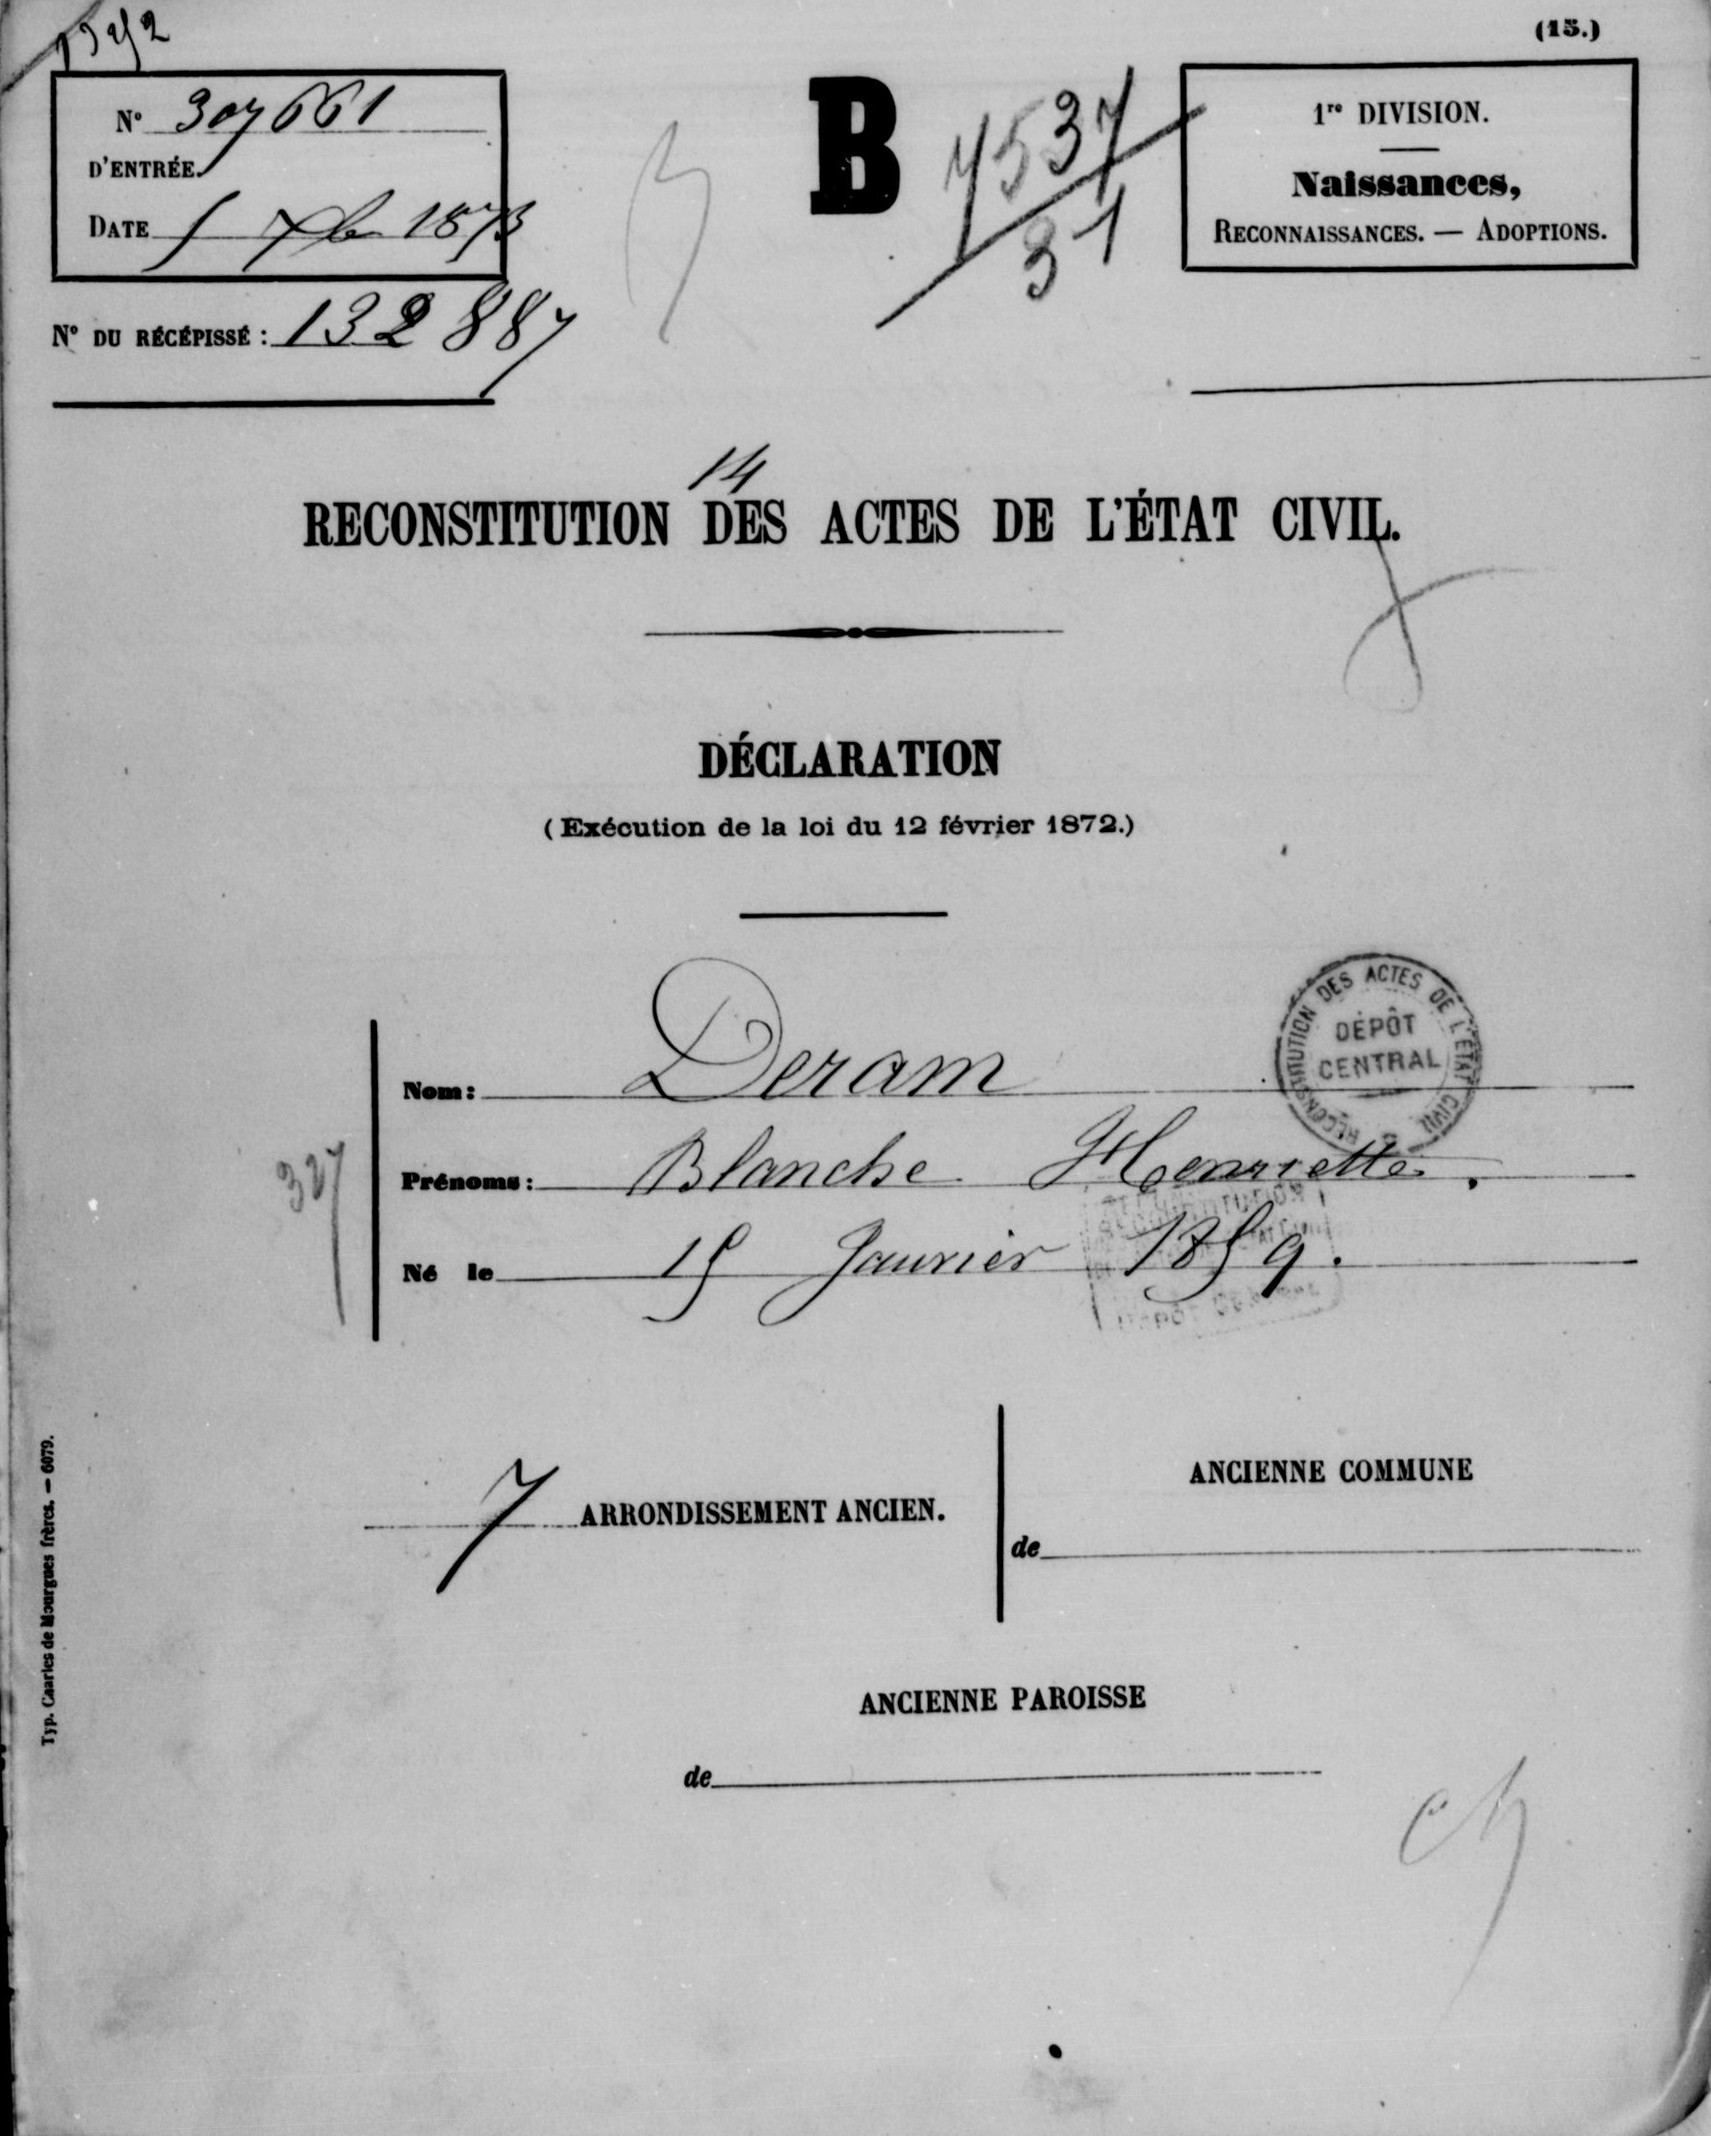 (15.)
N° 307661
D'ENTRÉE.
DATE 5 Xbre 1873
N° DU RÉCÉPISSÉ : 132887
B
7537
31
1re DIVISION.
Naissances,
RECONNAISSANCES. — ADOPTIONS.
14
RECONSTITUTION DES ACTES DE L'ÉTAT CIVIL.
DÉCLARATION
(Exécution de la loi du 12 février 1872.)
RECONSTITUTION DES ACTES DE L'ÉTAT CIVIL
DÉPÔT
CENTRAL
Nom: Deram
Prénoms: Blanche Henriette.
327
Né le 15 Janvier 1859.
7 ARRONDISSEMENT ANCIEN.
ANCIENNE COMMUNE
de
ANCIENNE PAROISSE
de
Typ. Charles de Mourgues frères. — 6079.